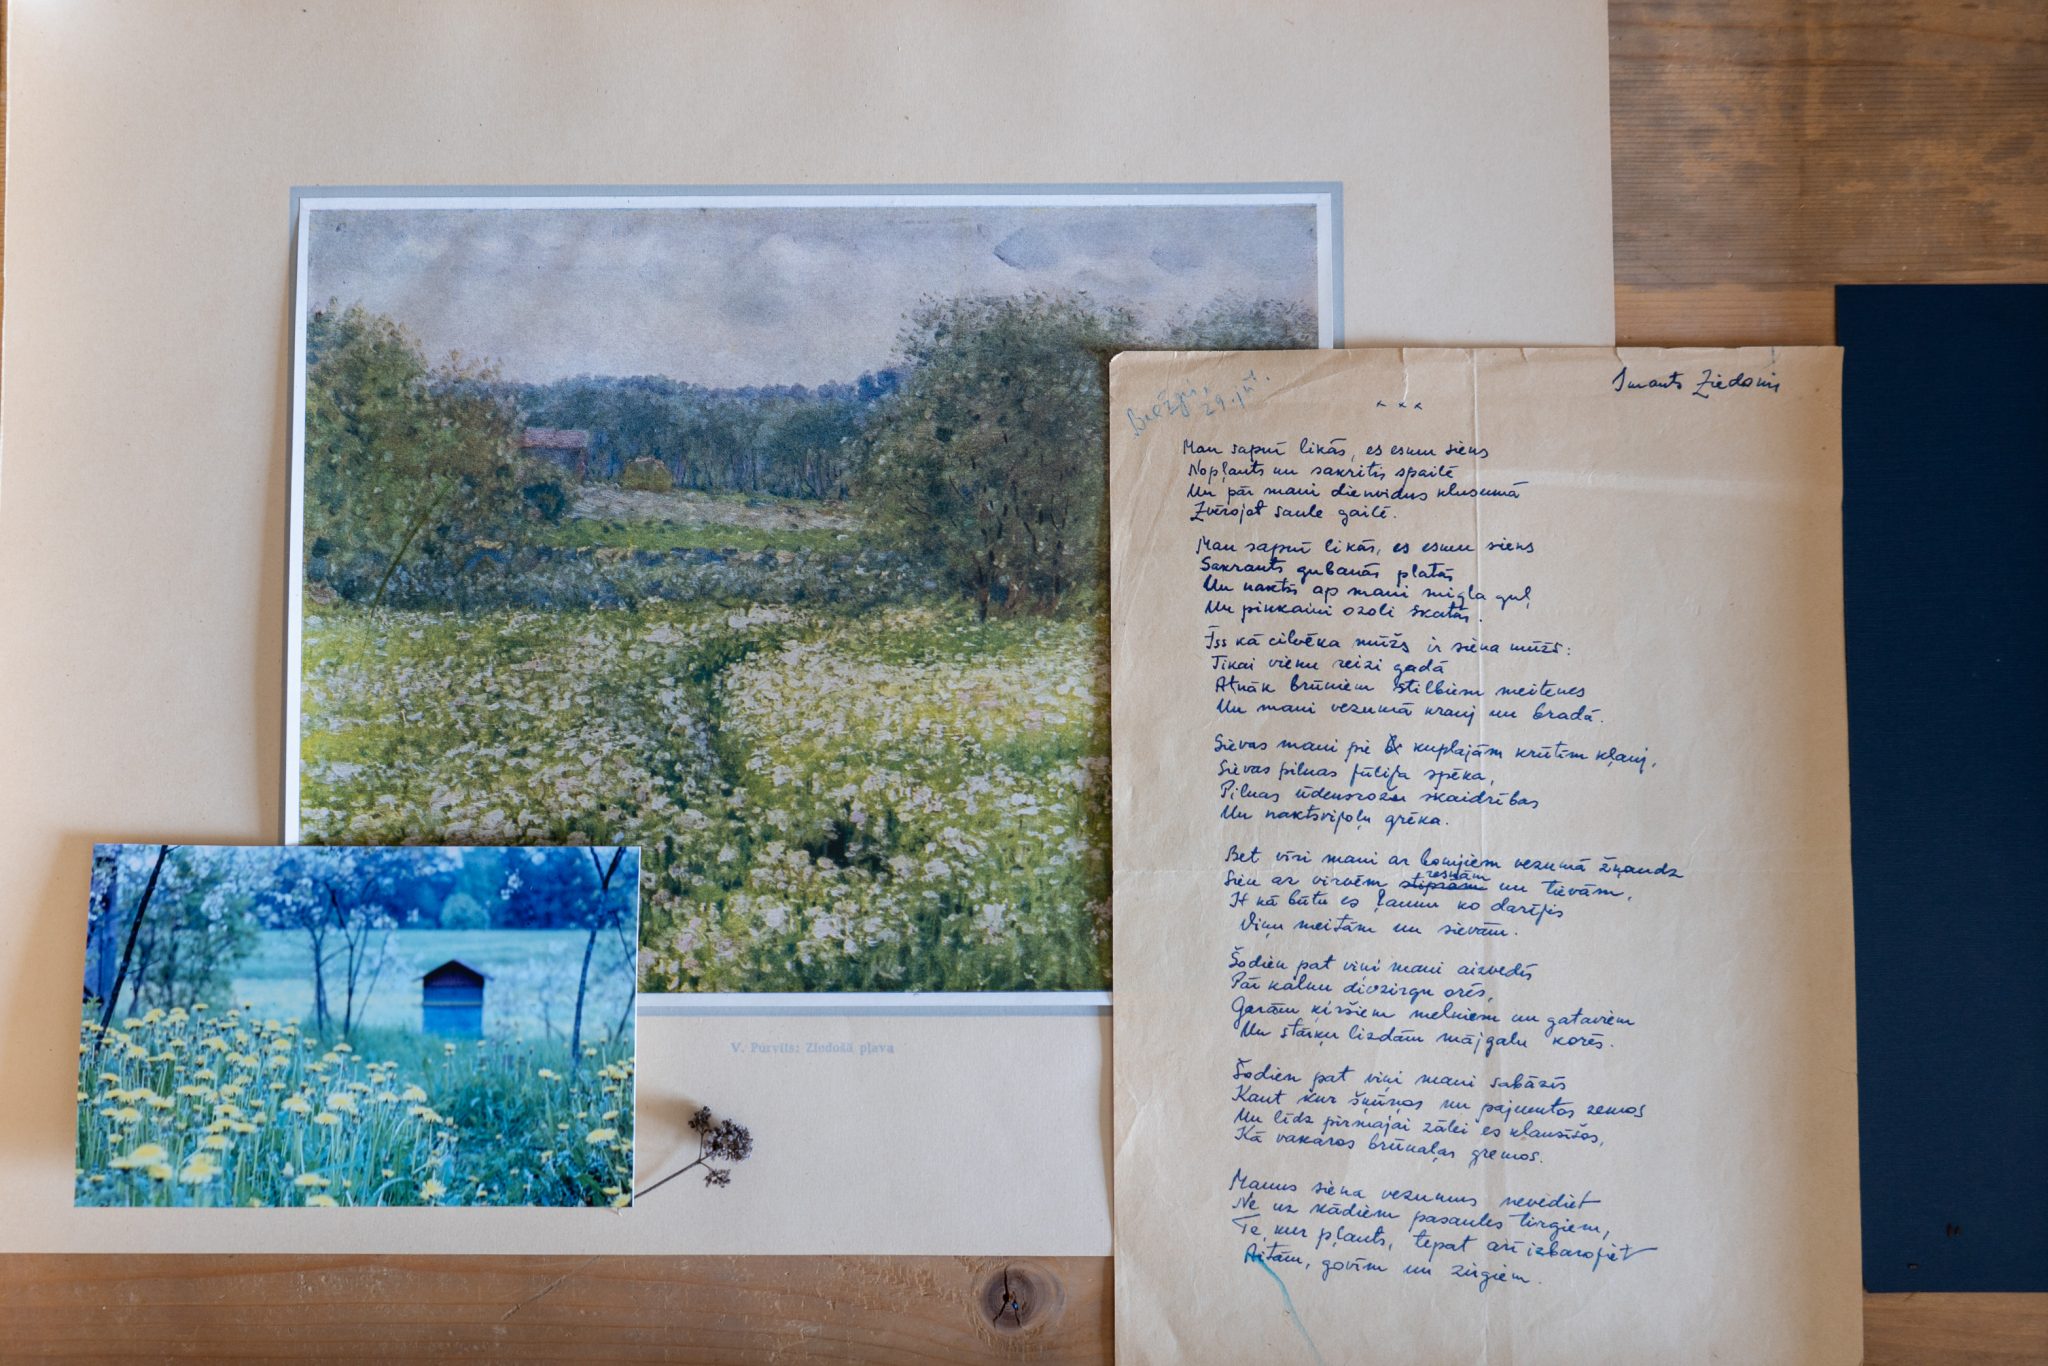 V. Purvīts: Ziedošā pļava
Imants Ziedonis
29. jūl.
× × ×
Man sapnī likās, es esmu siens
Nopļauts un sakritis spailē
Un pār mani dienvidus klusumā
Zvērojot saule gailē.
Man sapnī likās, es esmu siens
Sakrauts gubanās platās
Un naktīs ap mani migla guļ
Un pinkaini ozoli skatās.
Īss kā cilvēka mūžs ir siena mūžs:
Tikai vienu reizi gadā
Atnāk brūniem stilbiem meitenes
Un mani vezumā krauj un bradā.
Sievas mani pie kuplajām krūtīm kļauj,
Sievas pilnas jūlija spēka,
Pilnas ūdensrožu skaidrības
Un naktsvijoļu grēka.
Bet vīri mani ar bomjiem vezumā žņaudz
resnām
Sien ar virvēm stiprām un tievām,
It kā būtu es ļaunu ko darījis
Viņu meitām un sievām.
Šodien pat viņi mani aizvedīs
Pār kalnu divzirgu orēs,
Garām ķiršiem melniem un gataviem
Un stārķu lizdām mājgalu korēs.
Šodien pat viņi mani sabāzīs
Kaut kur šķūņos un pajumtos zemos
Un līdz pirmajai zālei es klausīšos,
Kā vakaros brūnaļas gremos.
Manus siena vezumus nevediet
Ne uz kādiem pasaules tirgiem,
Te, kur pļauts, tepat arī izbarojiet
Aitām, govīm un zirgiem.